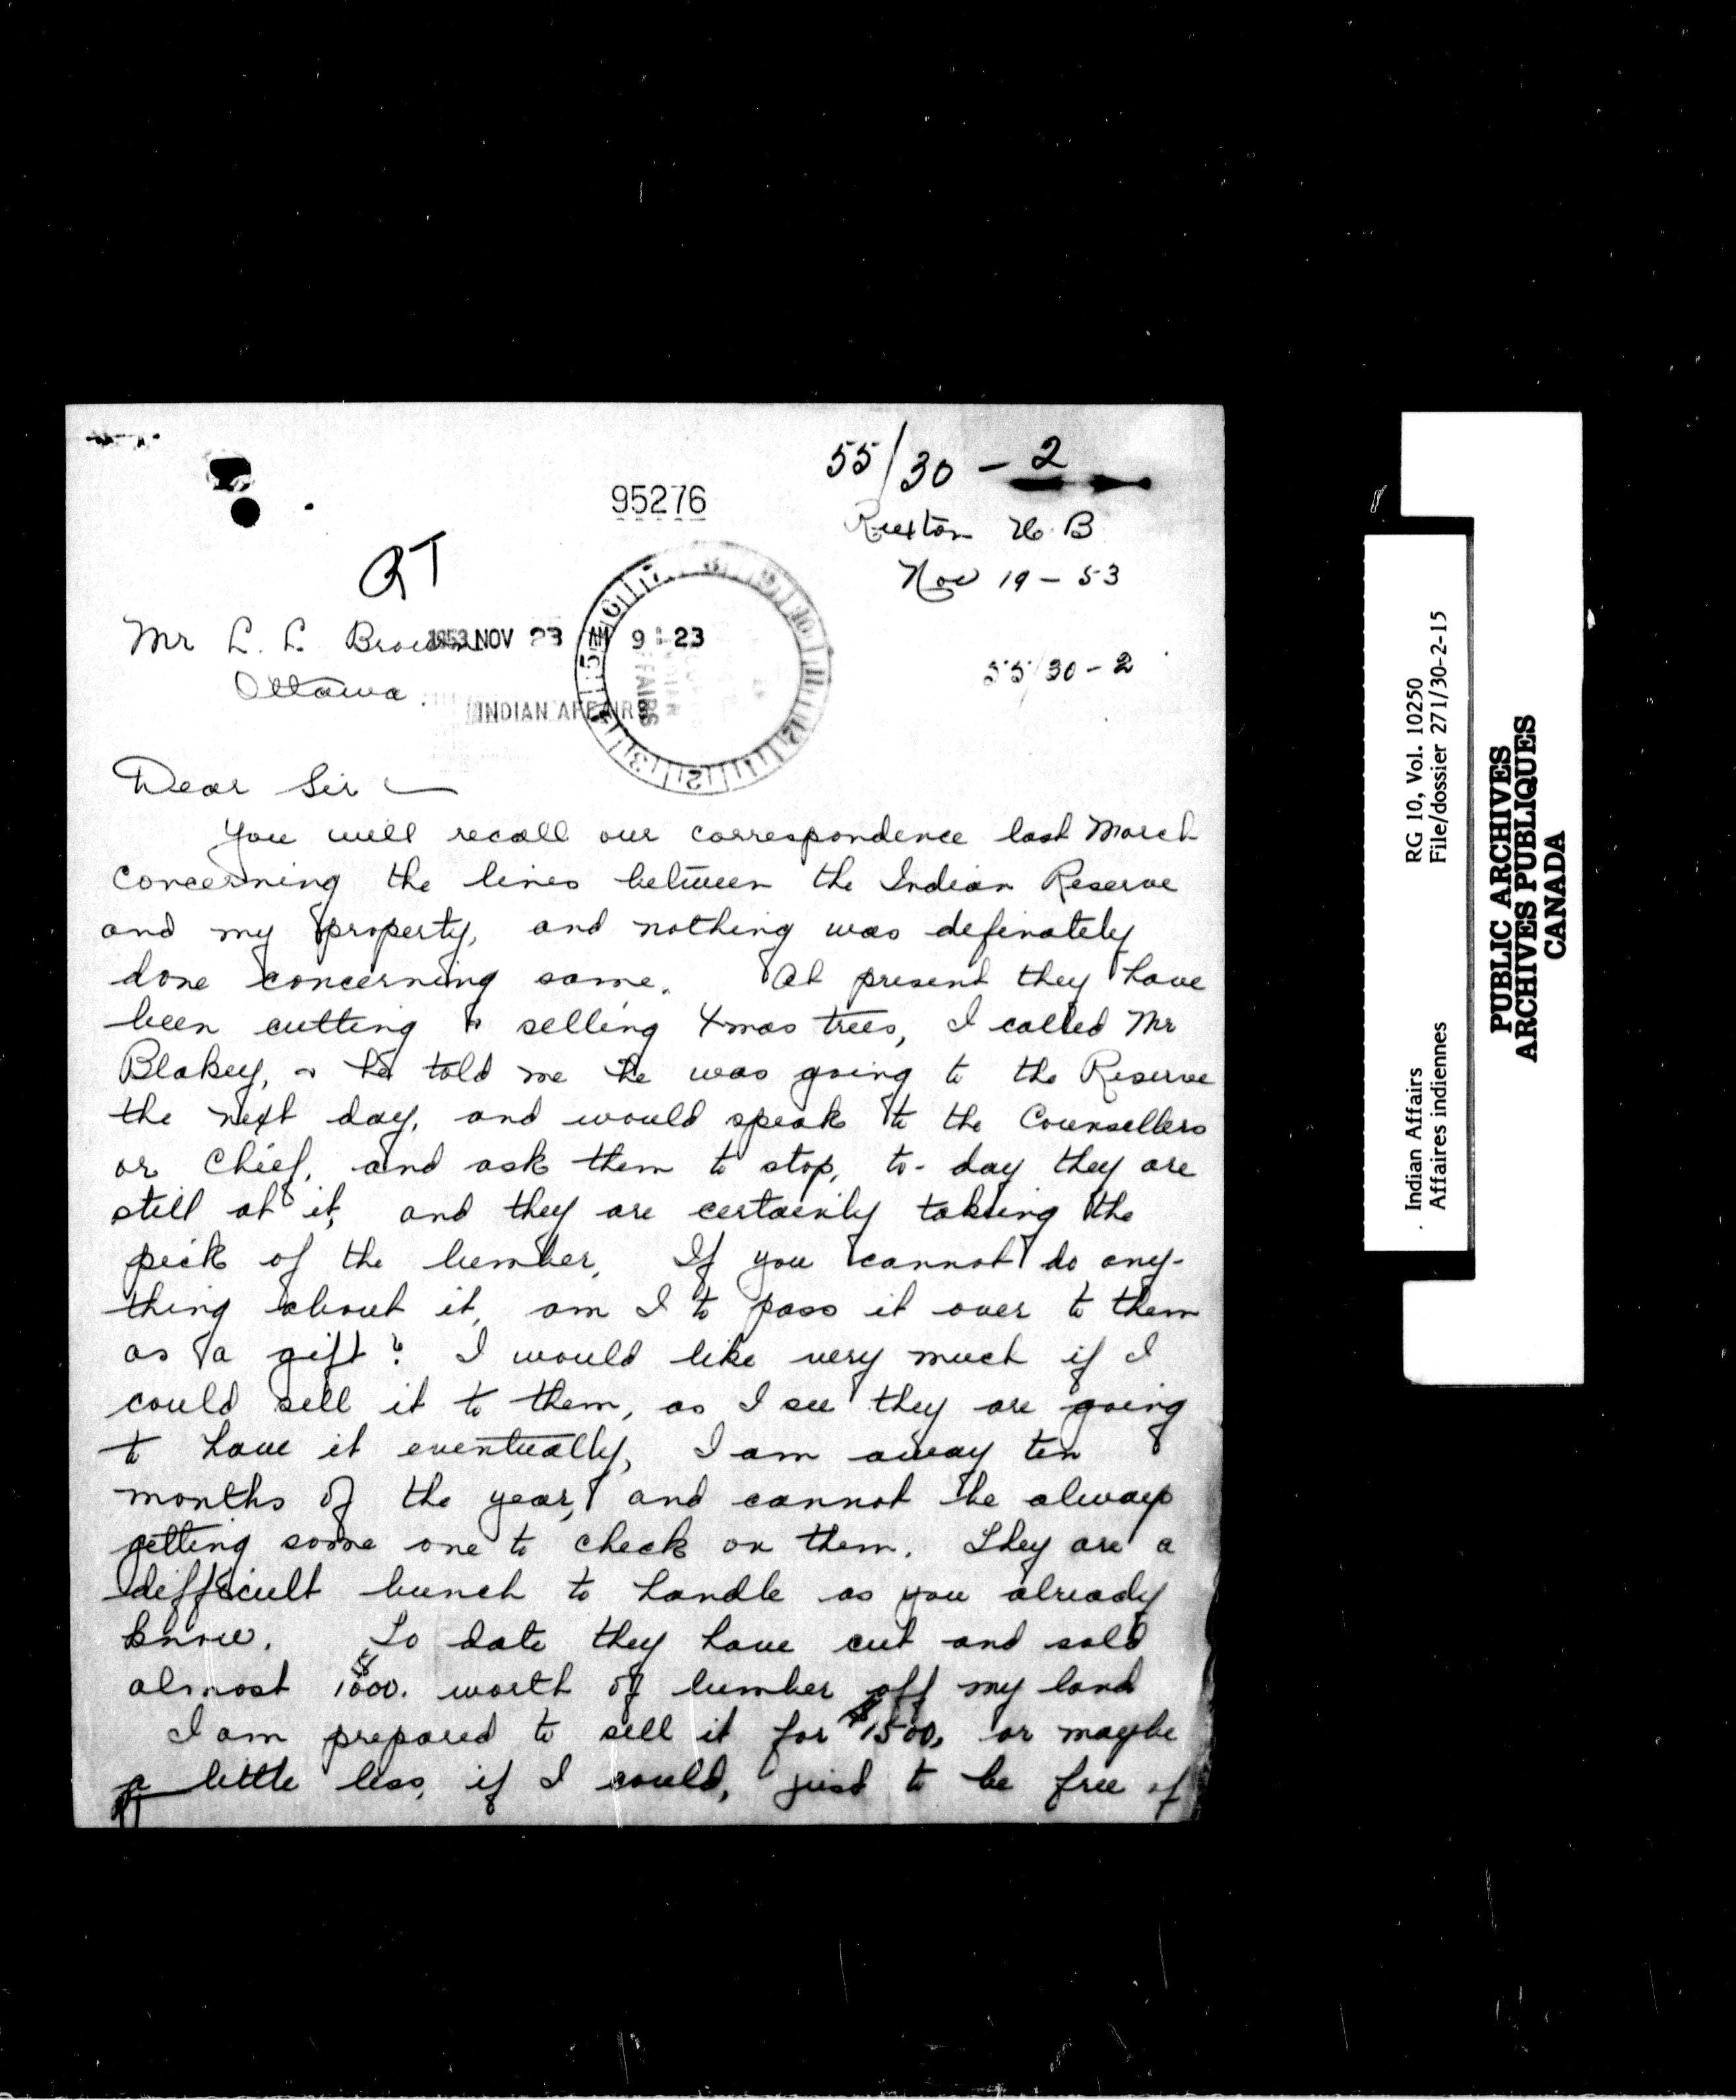 55/30 - 2
95276
Rexton N. B
Nov 19 - 53
RT
Mr L. L. Brown
1953 NOV 23 AM 9:23
Ottawa.
55/30-2
INDIAN AFFAIRS
Dear Sir —
You will recall our correspondence last March
concerning the lines between the Indian Reserve
and my property, and nothing was definately
done concerning same. At present they have
been cutting & selling Xmas trees, I called Mr
Blakey, & he told me he was going to the Reserve
the next day, and would speak to the Counsellers
or Chief, and ask them to stop, to-day they are
still at it, and they are certainly taking the
pick of the lumber. If you cannot do any-
thing about it, am I to pass it over to them
as a gift? I would like very much if I
could sell it to them, as I see they are going
to have it eventually, I am away ten
months of the year, and cannot be always
getting some one to check on them. They are a
difficult bunch to handle as you already
know. To date they have cut and sold
almost $1000. worth of lumber off my land
I am prepared to sell it for $1500, or maybe
a little less, if I could, just to be free of
Indian Affairs RG 10, Vol. 10250
Affaires indiennes File/dossier 271/30-2-15
PUBLIC ARCHIVES
ARCHIVES PUBLIQUES
CANADA